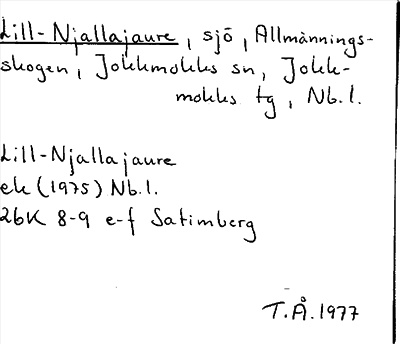 Lill-Njallajaure, sjö, Allmännings-
skogen, Jokkmokks sn, Jokk-
mokks tg, Nb.l.
Lill-Njallajaure
ek (1975) Nb.l.
26K 8-9 e-f Satimberg
T.Å.1977